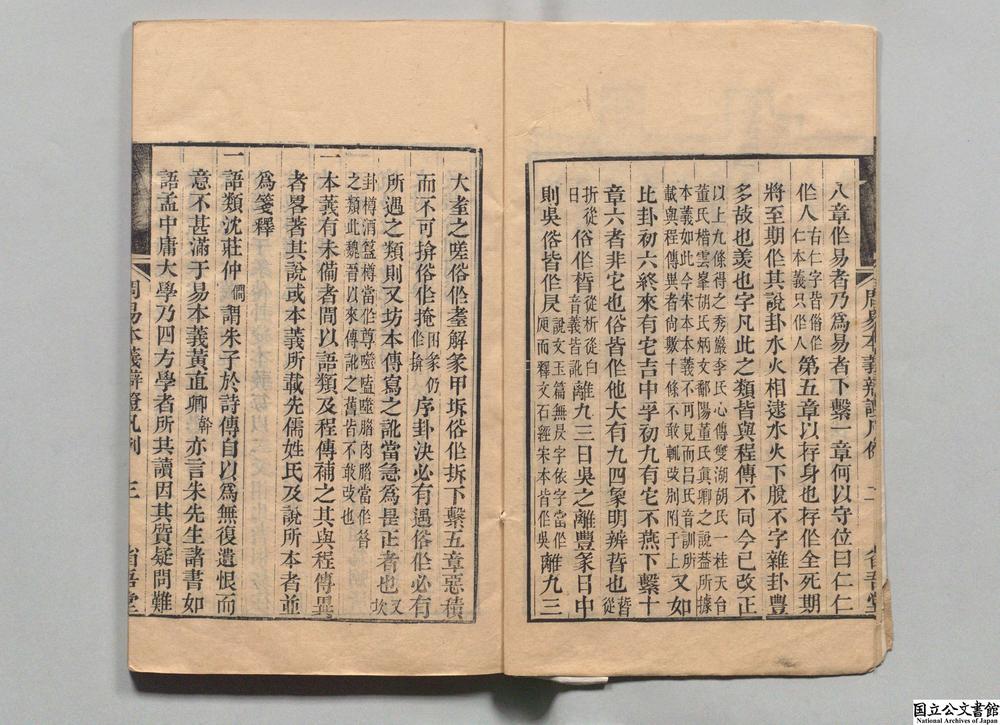 八章作易者乃為易者下繫一章何以守位曰仁仁
作人右仁字皆俗作仁本義只作人第五章以存身也存作全死期
將至期作其說卦水火相逮水火下脫不字雜卦豐
多故也羡也字凡此之類皆與程傳不同今已改正
以上九條得之秀巖李氏心傳雙湖胡氏一桂天台
董氏楷雲峯胡氏炳文鄱陽董氏眞卿之說葢所據
本義如此今宋本本義不可見而呂氏音訓所
載與程傳異者尙數十條不敢輒改別附于上又如
比卦初六終來有它吉中孚初九有它不燕下繫十
章六者非它也俗皆作他大有九四象明辨晢也晢從
折從日俗作晳從析從白音義皆訛離九三日吳之離豐彖日中
則吳俗皆作昃說文玉篇無昃字依字當作而釋文石經宋本皆作吳離九三
周易本義辨證凡例 二 省吾堂
大耋之嗟俗作耊解彖甲坼俗作拆下繫五章惡積
而不可揜俗作掩困彖仍作揜序卦決必有遇俗作必有
所遇之類則又坊本傳寫之訛當急為昰正者也又坎
卦樽酒簋樽當作尊噬嗑噬腊肉腊當作昝
之類此魏晉以來傳訛之舊皆不敢改也
一本義有未備者間以語類及程傳補之其與程傳異
者畧著其說或本義所載先儒姓氏及說所本者並
為箋釋
一語類沈莊仲僩謂朱子於詩傳自以為無復遺恨而
意不甚滿于易本義黃直卿榦亦言朱先生諸書如
語孟中庸大學乃四方學者所其讀因其質疑問難
周易本義辨證凡例 三 省吾堂
国立公文書館
National Archives of Japan